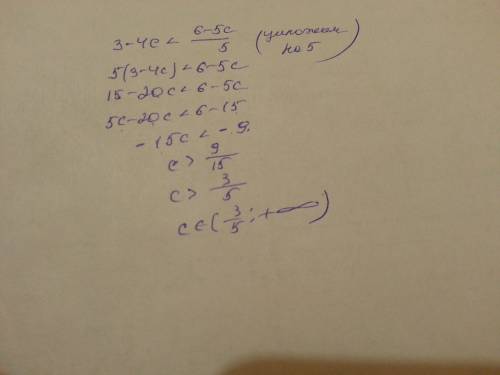 3-4c < (6-5c)/5 (умножаем на 5)
5(3-4c) < 6-5c
15-20c < 6-5c
5c-20c < 6-15
-15c < -9.
c > 9/15
c > 3/5
c∈(3/5; +∞)